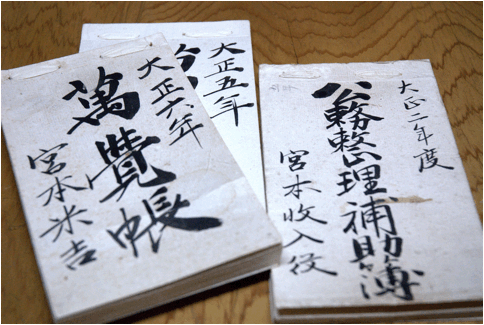 大正六年
萬覺帳
宮本米吉
大正五年
大正二年度
公務整理補助簿
宮本收入役